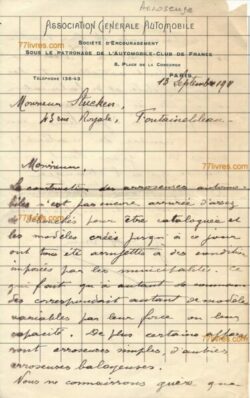 Arroseuse
ASSOCIATION GÉNÉRALE AUTOMOBILE
SOCIÉTÉ D'ENCOURAGEMENT
SOUS LE PATRONAGE DE L'AUTOMOBILE-CLUB DE FRANCE
8, PLACE DE LA CONCORDE
TÉLÉPHONE 136-43
PARIS
13 Septembre 191
77livres.com
Monsieur
45 rue Royale,
Fontainebleau
Monsieur,
77livres.com
La construction des arroseuses automo
biles n'est pas encore arrivée d'assez
de pour être cataloguée et
les modèles créés jusqu'à ce jour
ont tous été à des conditions
imposées par les municipalités. Ce
qui fait qu'à autant de communes
correspondrait autant de modèles
variables par leur force ou leur
capacité. De plus certains
sont arroseuses simples, d'autres
arroseuses balayeuses.
Nous ne connaissons guère que
77livres.com